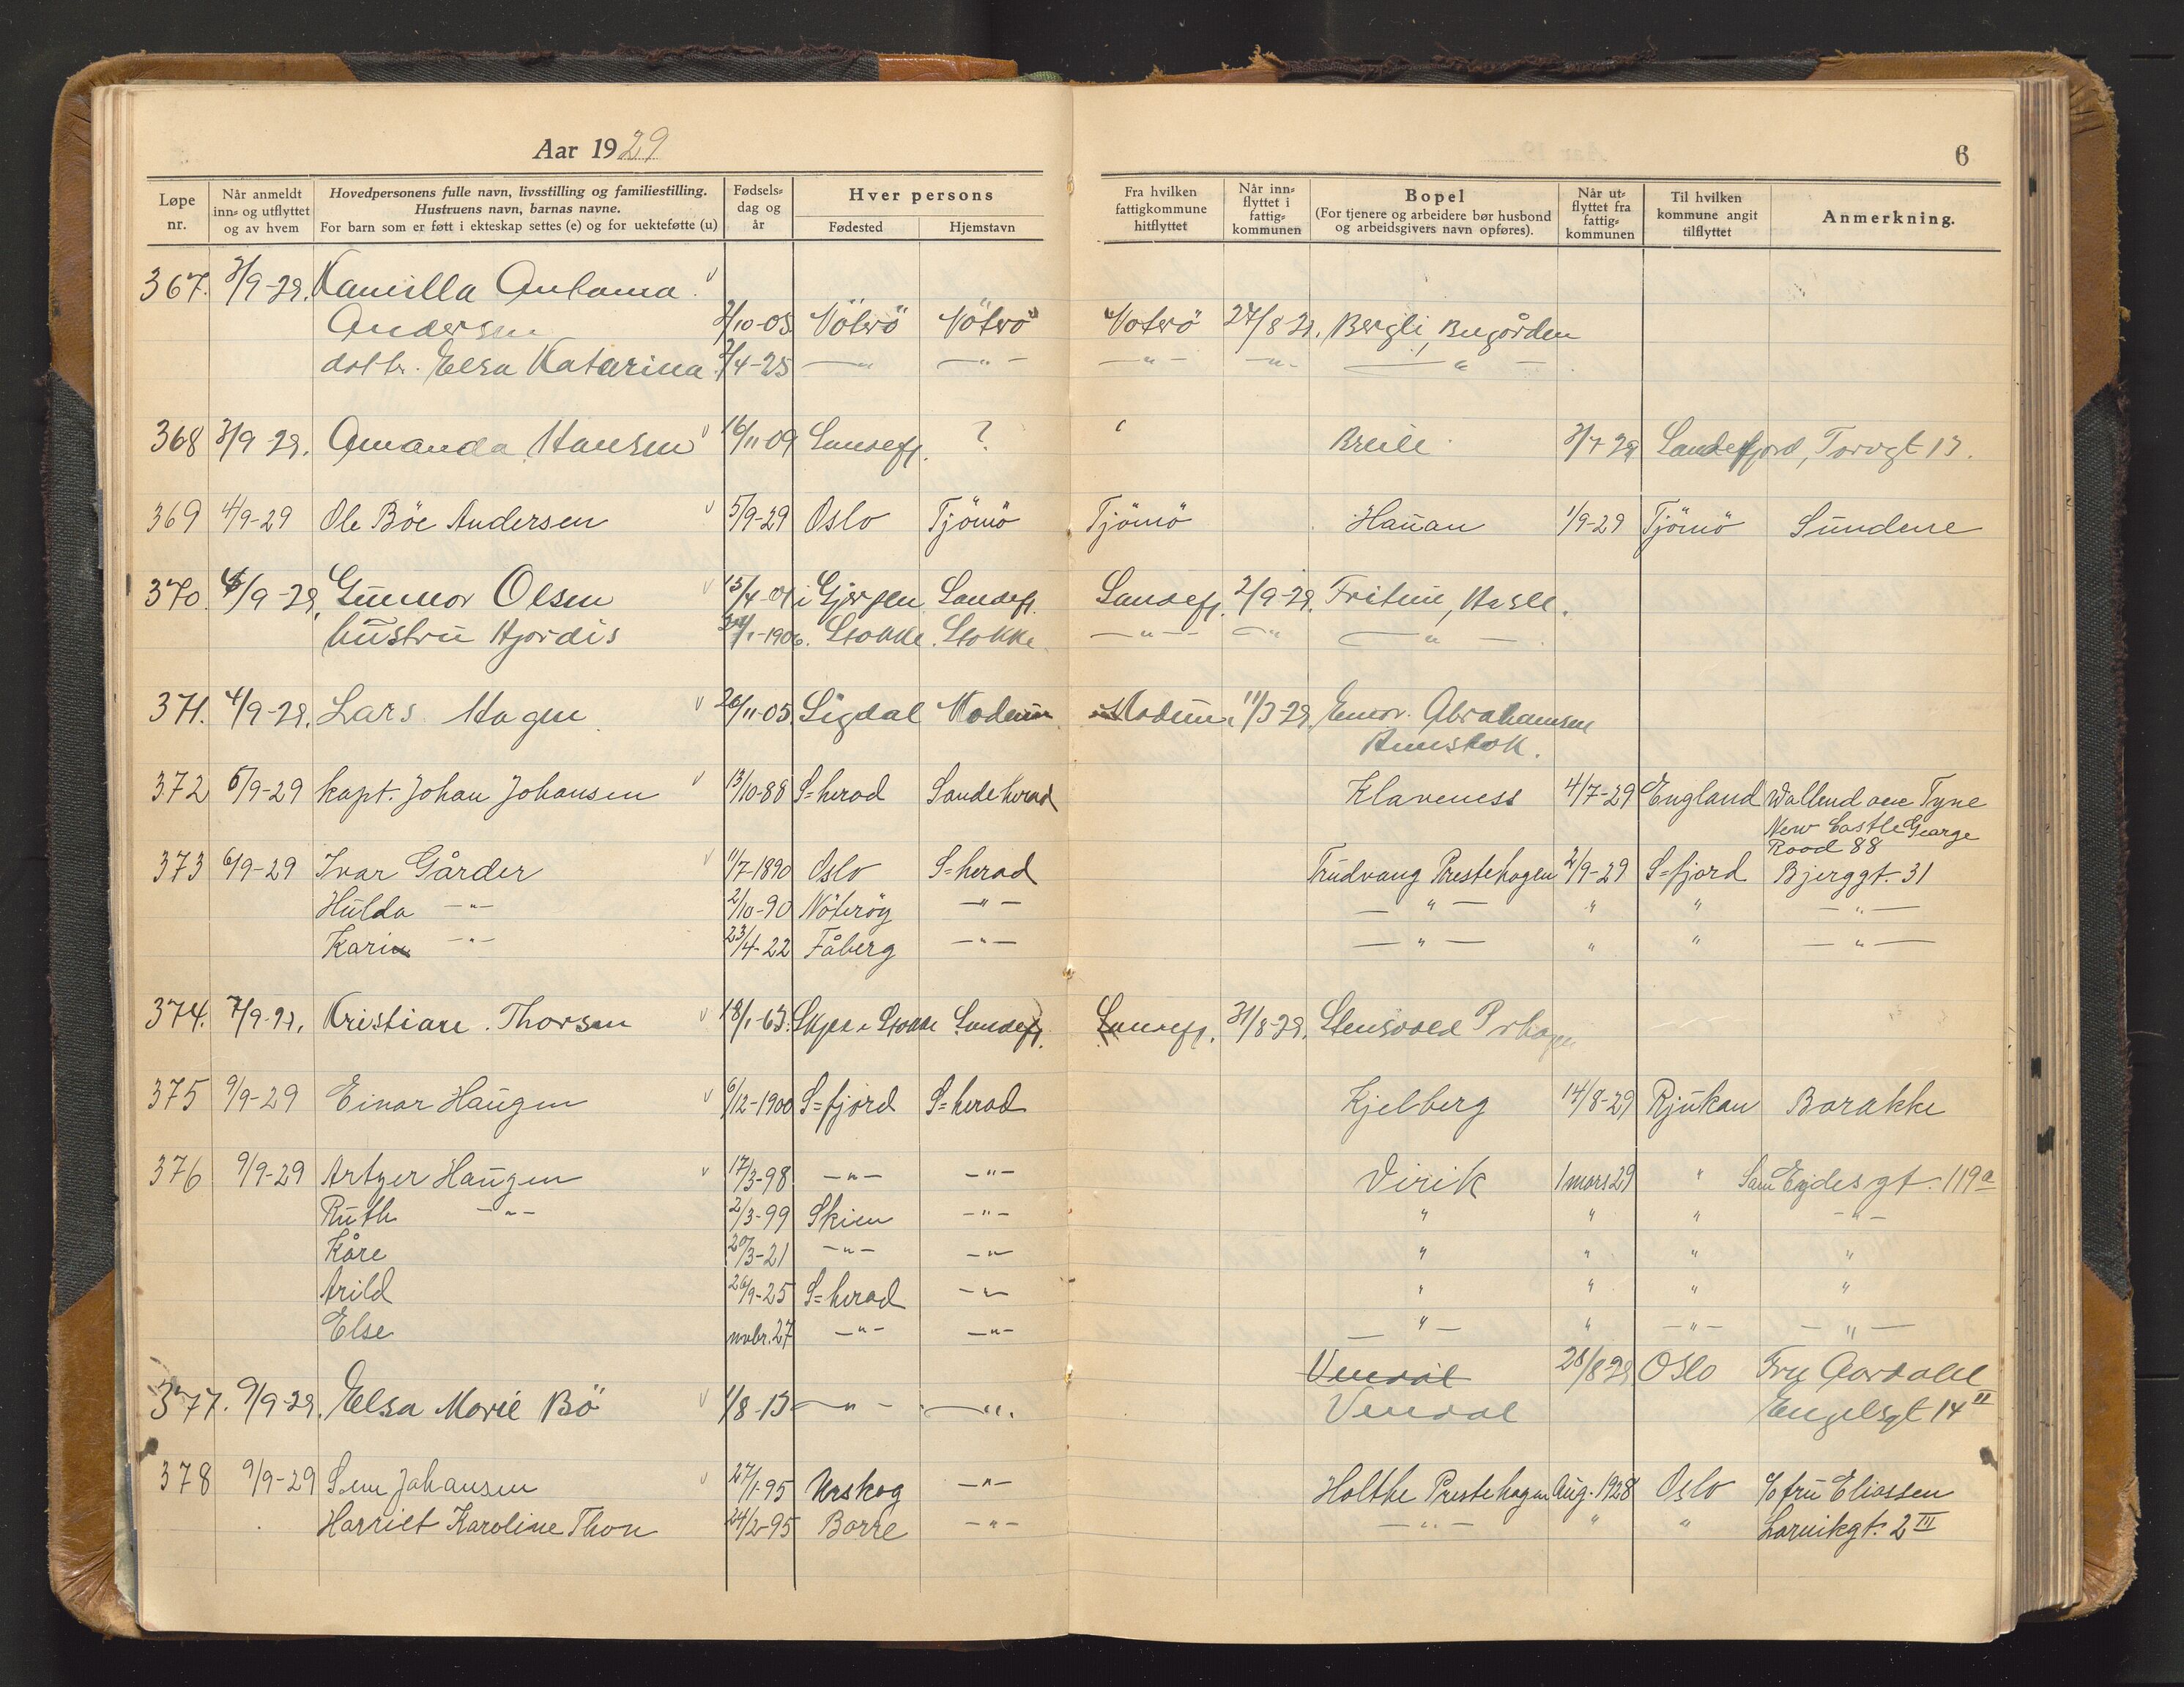 Aar 1929
6
Løpe nr.
Når anmeldt inn= og utflyttet og av hvem
Hovedpersonens fulle navn, livsstilling og familiestilling.
Hustruens navn, barnas navne.
For barn som er føtt i ekteskap settes (e) og for uekteføtte (u)
Fødsels= dag og år
Hver persons
Fødested
Hjemstavn
Fra hvilken fattigkommune hitflyttet
Når inn= flyttet i fattig= kommunen
Bopel
(For tjenere og arbeidere bør husbond og arbeidsgivers navn opføres).
Når ut= flyttet fra fattig= kommunen
Til hvilken kommune angit tilflyttet
Anmerkning.
367. 3/9-29. Kamilla Antoma
Andersen 2/10-05 Nöterö Nöterö Noterö 27/8-29. Bergli, Bugården
dattr. Elsa Katarina 2/4-25 —"— —"— —"— —"— —"—
368 3/9 29. Amanda Hansen 16/11-09 Sandefj. ? Breili 3/7 29 Sandefjord, Torvgt 13.
369 4/9-29 Ole Böe Andersen 5/9-29 Oslo Tjömö Tjömö Hauan 1/9-29 Tjömö Sundene
370. 4/9-29. Gunnor Olsen 13/4-04 i Gjerpen Sandefj. Sandefj. 2/9-29. Fritun, Hasle.
hustru Hjordis /1-1906. Stokke. Stokke —"— —"— —"—
371. 4/9-29. Lars Hagen 26/11-05 Sigdal Modum Modum 11/3-29. Einor. Abrahamsen
372 5/9-29 kapt. Johan Johansen 13/10-88 S=herad Sandeherad Klaveness 4/7-29 England Wallend Tyne
New Castle George
Road 88
373 6/9-29 Ivar Gårder 11/7-1890 Oslo S=herad Trudvang Prestehagen 2/9-29 S=fjord Bjerggt. 31
Hulda —"— 2/10-90 Nöteröy —"— —"— " " —"—
Kari —"— 23/4-22 Fåberg —"— —"— " " —"—
374. 7/9-29. Kristian. Thorsen 18/1-63. Stokke Sandefj. Sandefj. 31/8-29. Stensvold
375 9/9-29 Einar Haugen 6/12-1900 S=fjord S=herad Kjelberg 14/8-29 Rjukan Barakke
376 9/9-29 Artger Haugen 17/3-98 —"— —"— Virik 1 mars 29 " Sam Eydes gt. 119a
Ruth —"— 2/3-99 Skien —"— " " " —"—
Kåre 20/3-21 —"— —"— " " " "
Arild 26/9-25 S=herad —"— " " " "
Else novbr. 27 —"— —"— —"— " —"— —"—
Vendal 28/8-29 Oslo Fru Aardahl
377. 9/9-29. Elsa Marie Bö 1/8-13 —"— —"— Vendal Engelsgt 14 II
378 9/9-29 Sem Johansen 27/1-95 Urskog —"— Holthe Prestehagen Aug. 1928 Oslo c/o fru Eliassen
Harriet Karoline Thon 24/2-95 Borre —"— —"— " " Larvikgt. 2 III